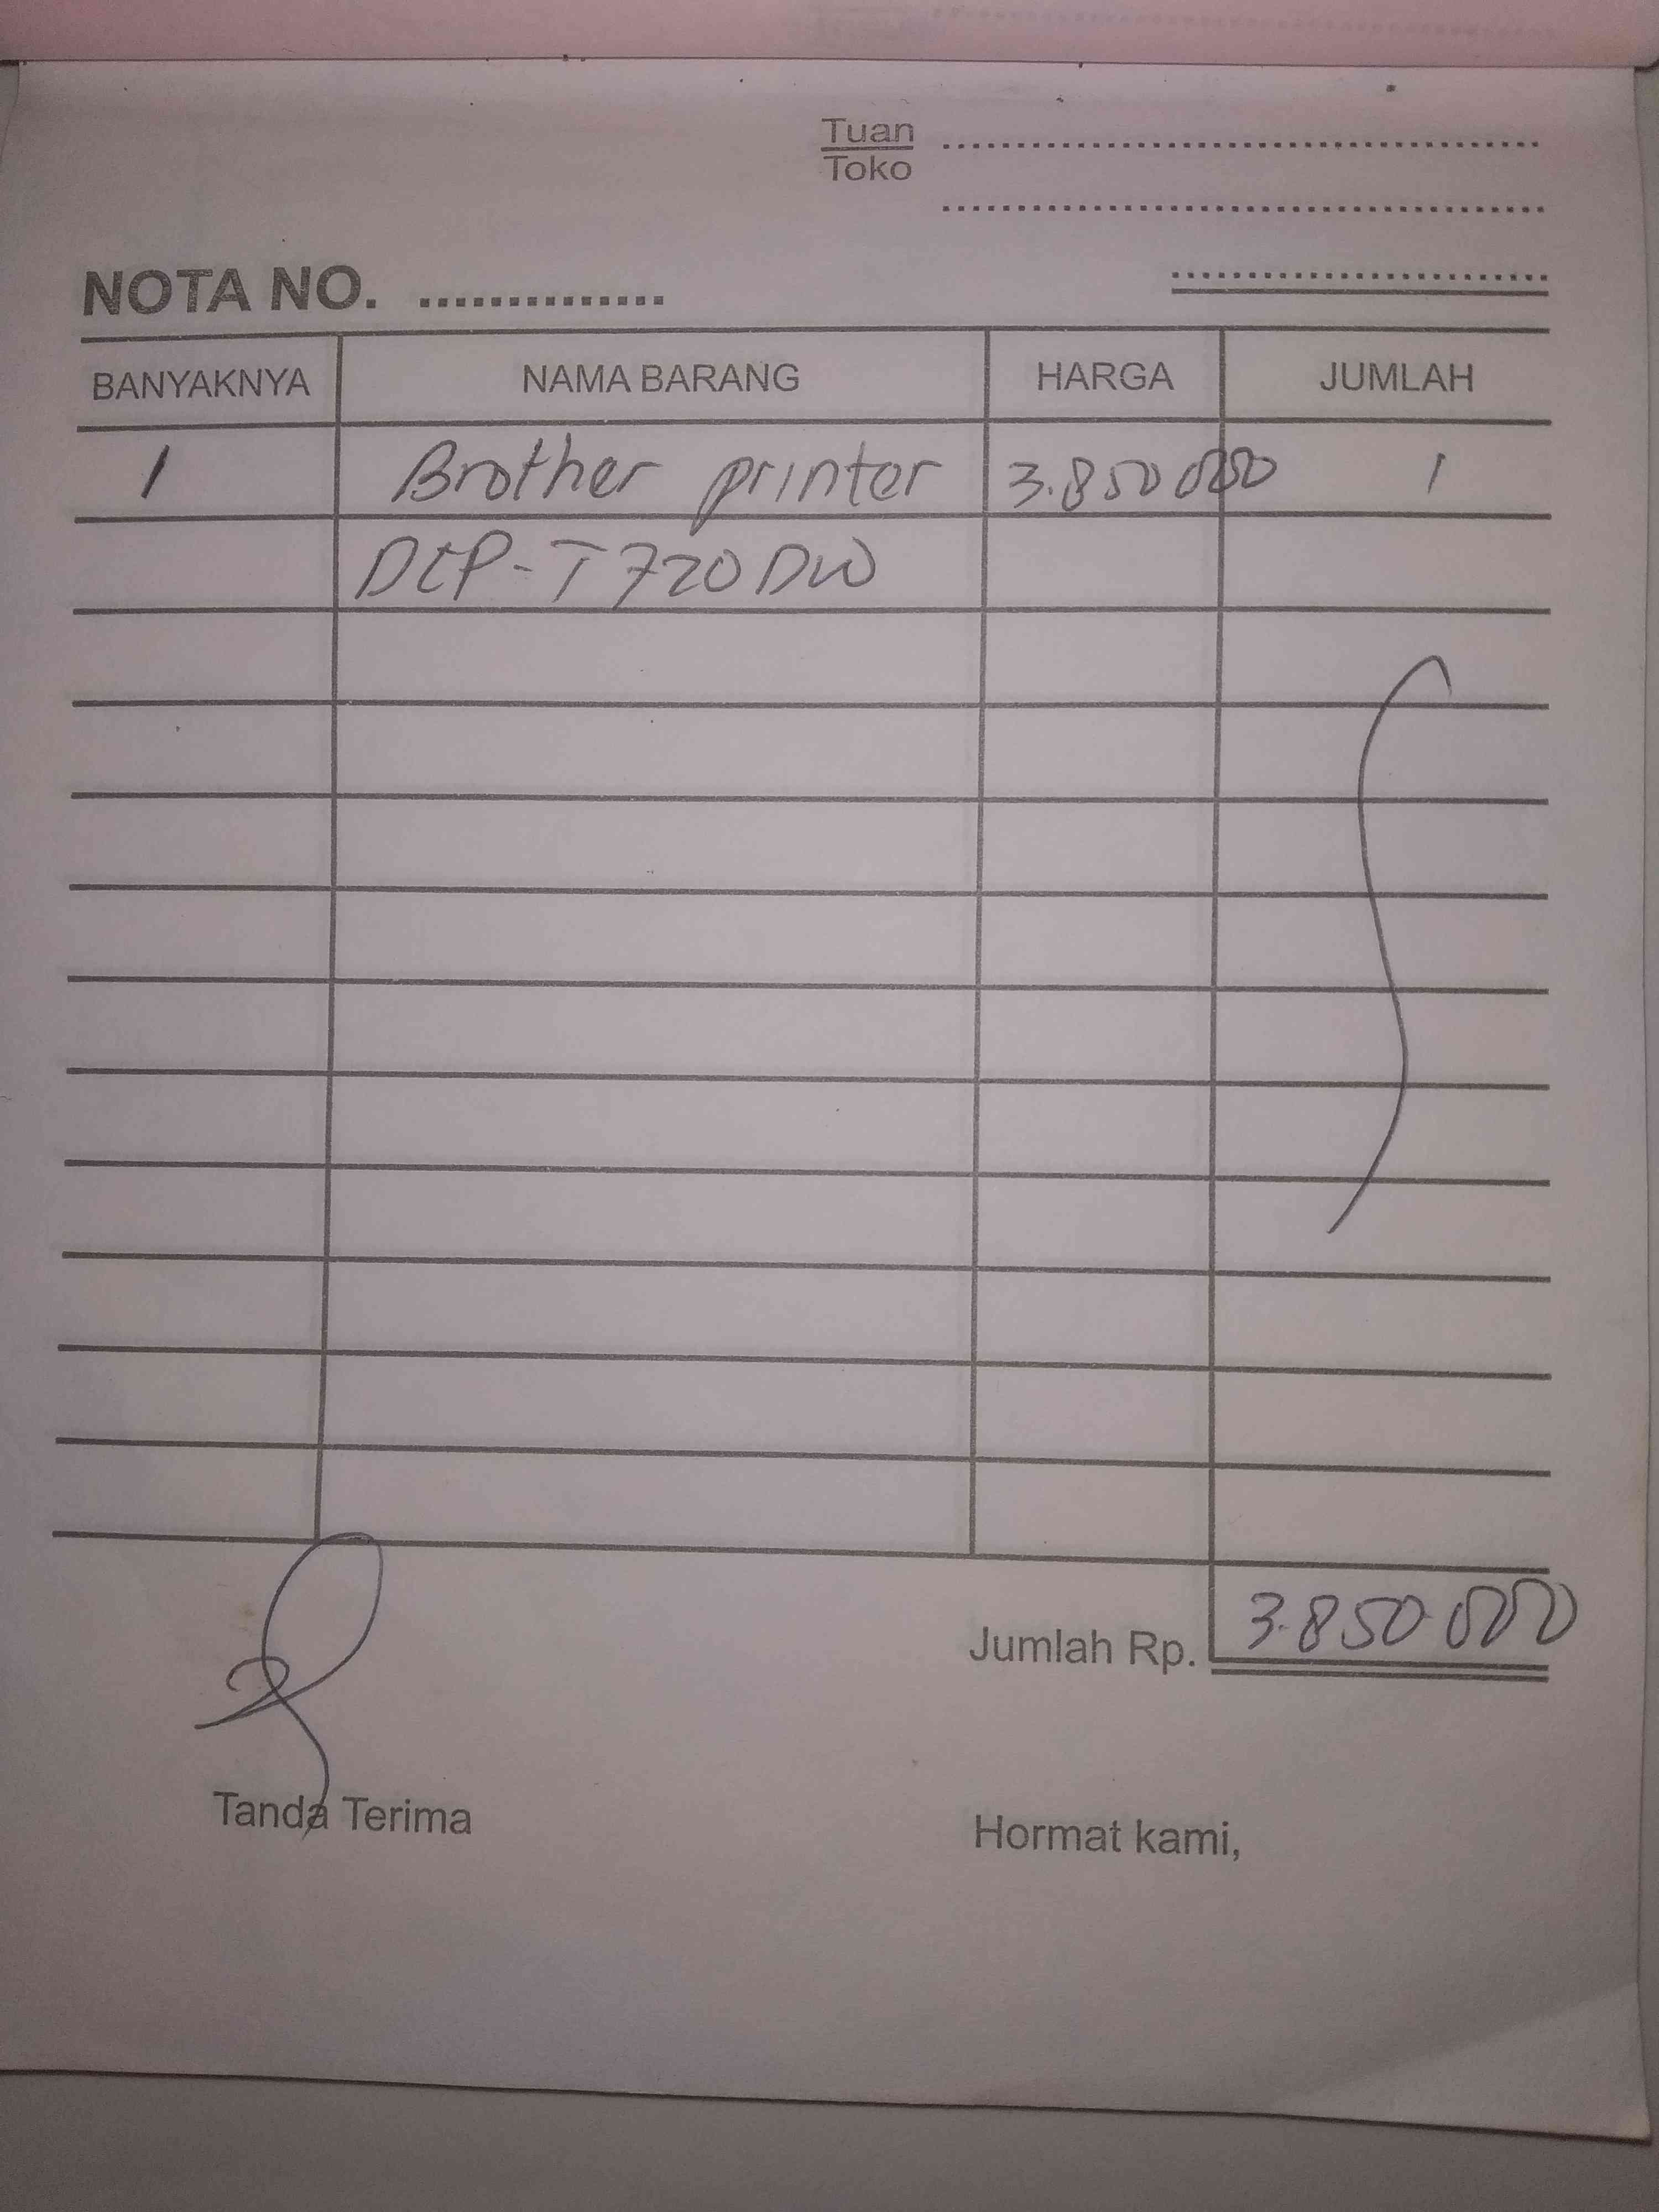 Tuan
Toko
NOTA NO. ..............
BANYAKNYA NAMA BARANG HARGA JUMLAH
1 Brother printer 3.850 000 1
DCP-T720DW
Jumlah Rp. 3.850.000
Tanda Terima Hormat kami,